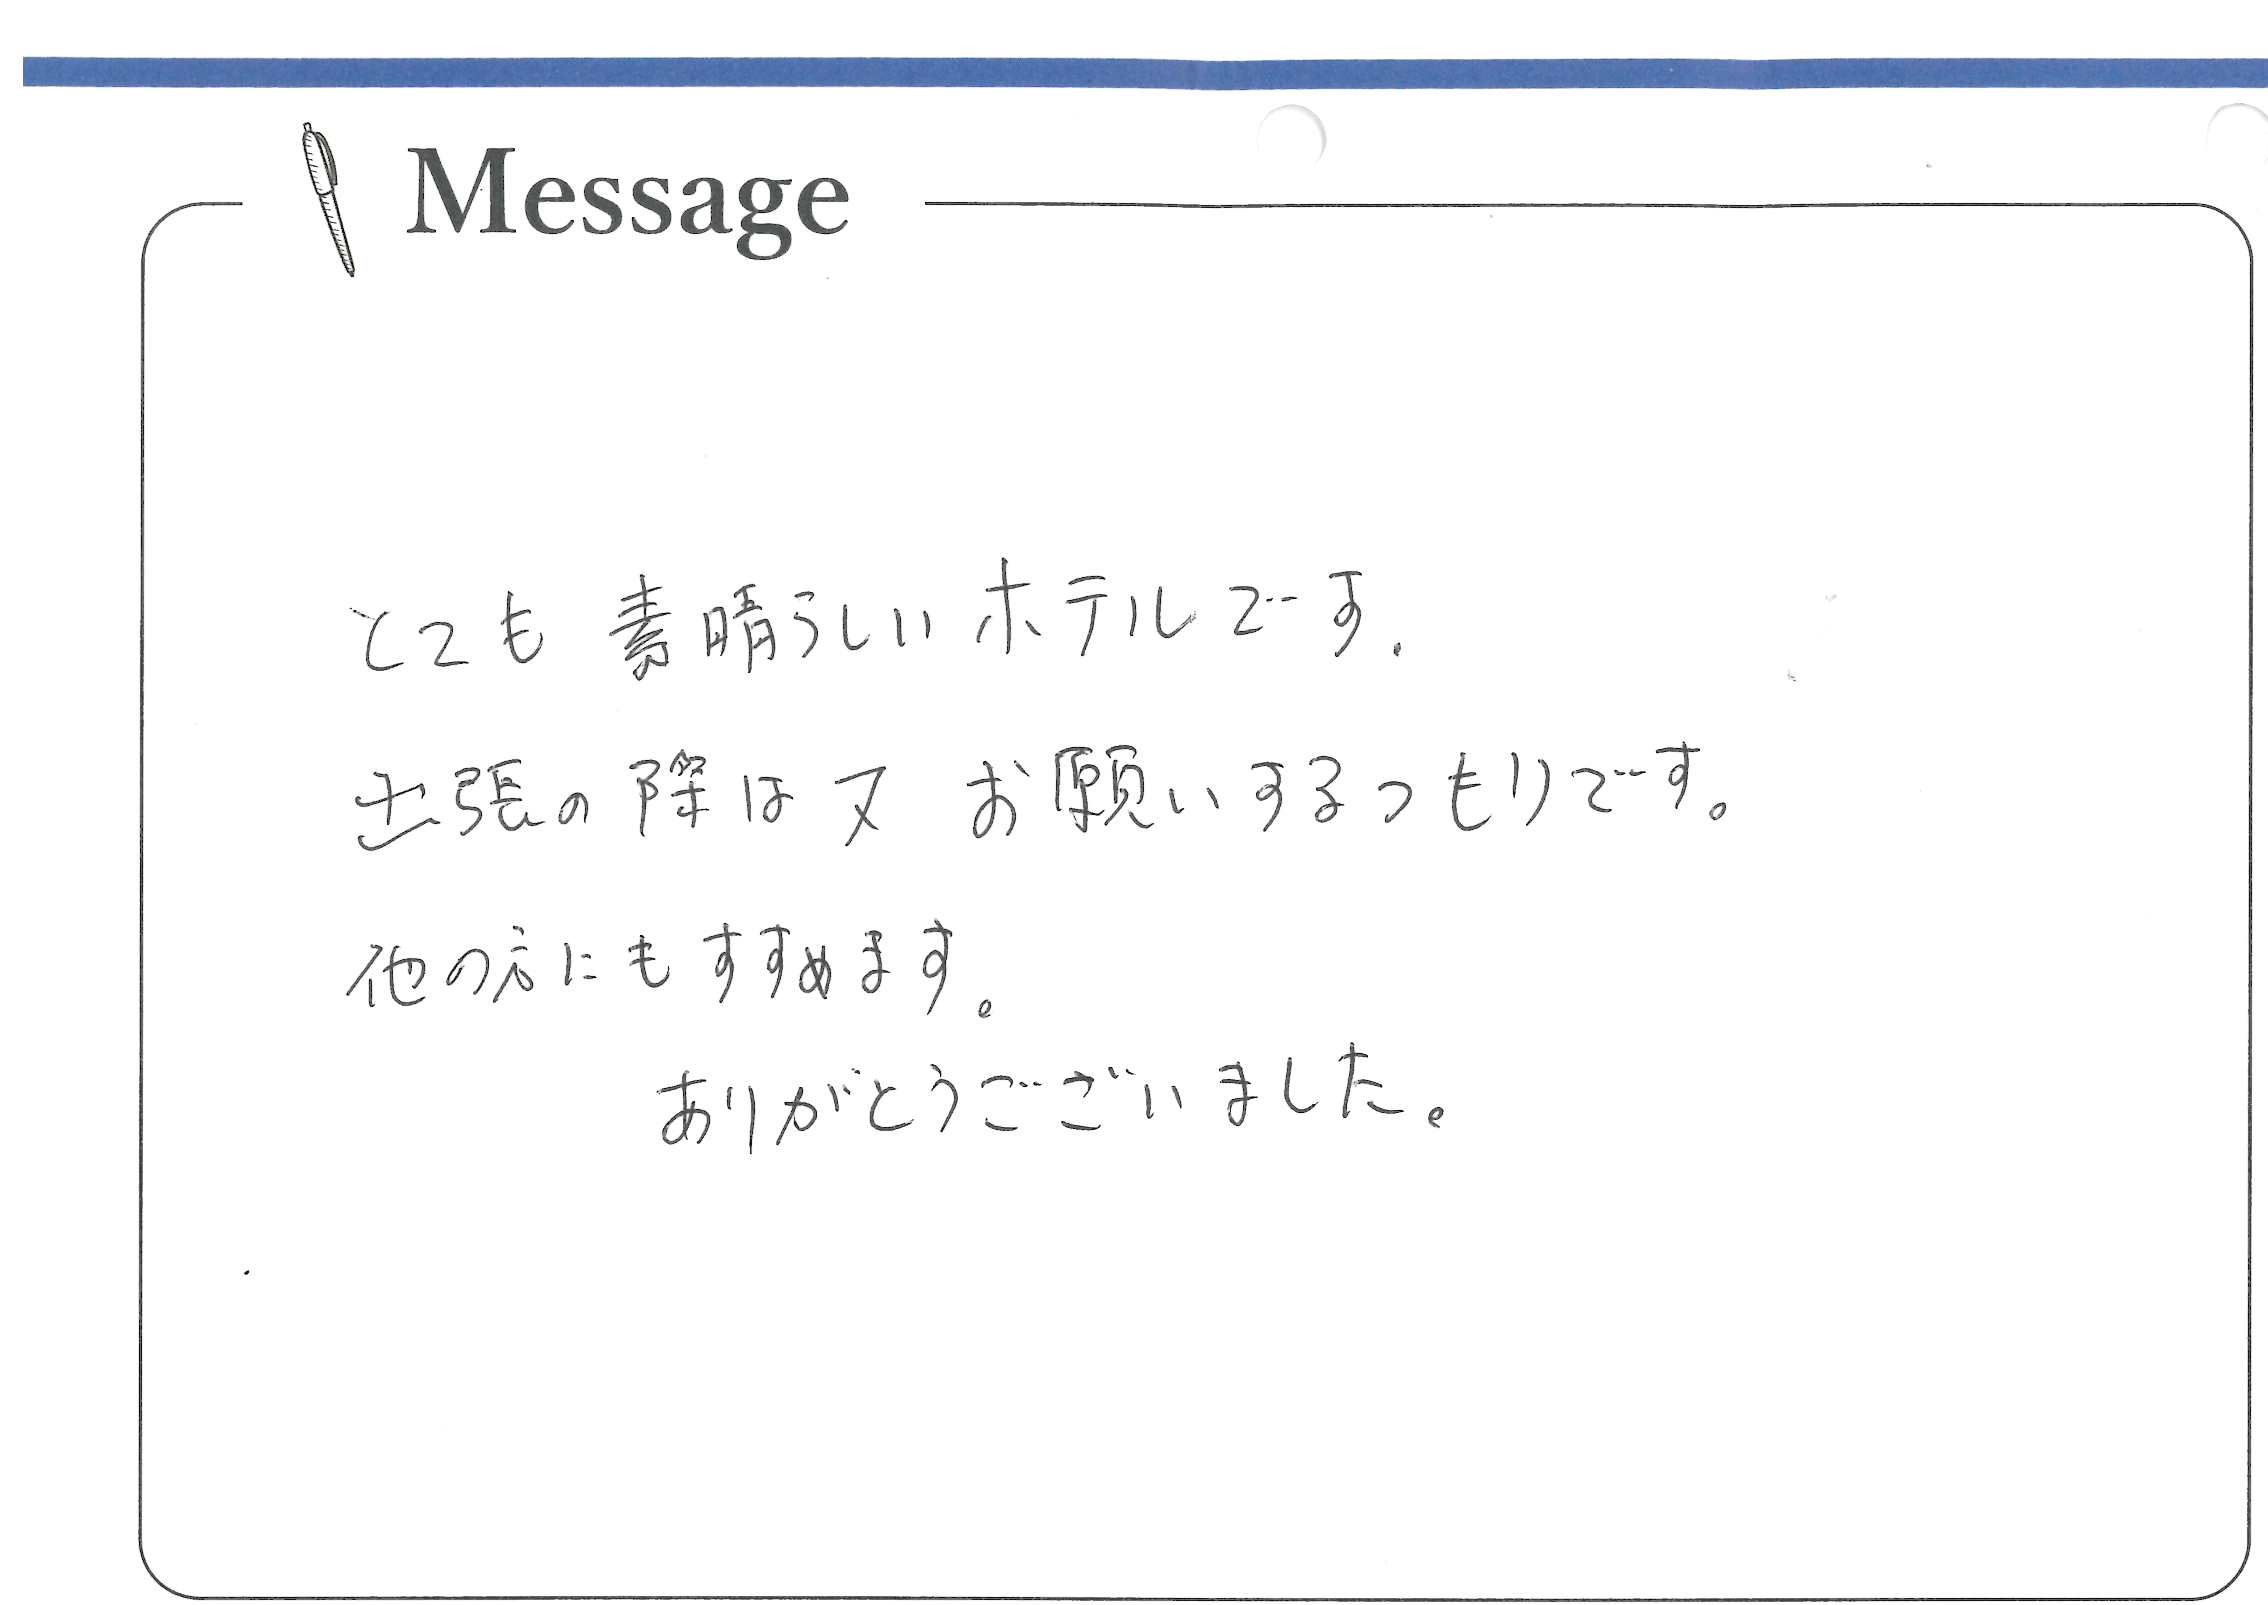 Message
とても素晴らしいホテルです.
出張の際は又 お願いするつもりです。
他の方にもすすめます。
ありがとうございました。